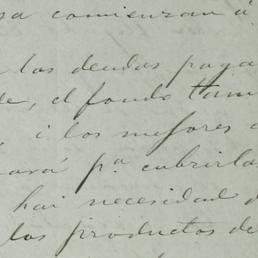 sa comienzan á
las deudas paga
de, el fondo tam
, i los mejores
ará pª cubrirla
hai necesidad d
los productos de